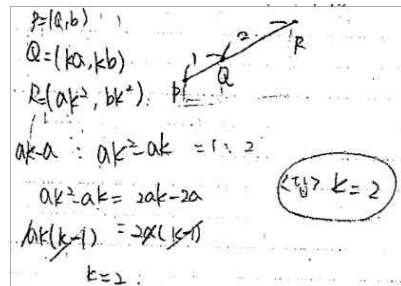 P=(a,b)
Q=(ka,kb)
R=(ak²,bk²)
1 2
P Q R
ak-a : ak²-ak = 1 : 2
ak²-ak = 2ak-2a
ak(k-1) = 2a(k-1)
k=2
<답> k=2